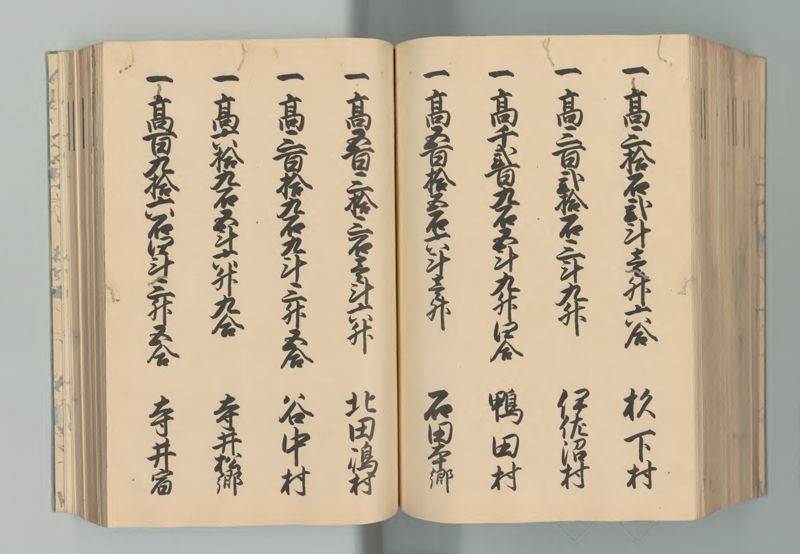 一高三拾石弐斗壱升六合 杁下村
一高三百弐拾石三斗九升 伊佐沼村
一高千弐百九石五斗九升四合 鴨田村
一高五百拾五石六斗壱升 石田本郷
一高五百三拾三石壱斗六升 北田嶋村
一高三百拾九石九斗三升五合 谷中村
一高六拾九石五斗六升九合 寺井松郷
一高百九拾六石四斗三升五合 寺井宿